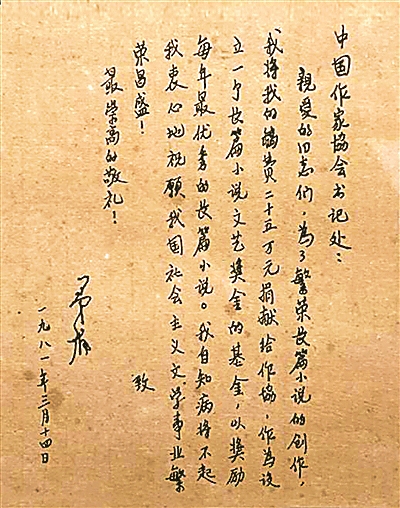 中国作家協会书记处：
親爱的同志们，为了繁荣长篇小说的创作，
我将我的稿费二十五万元捐献给作協，作为设
立一个长篇小说文艺奖金的基金，以奖励
每年最优秀的长篇小说。我自知病将不起，
我衷心地祝愿我国社会主义文学事业繁
荣昌盛！
致
最崇高的敬礼！
茅盾
一九八一年三月十四日